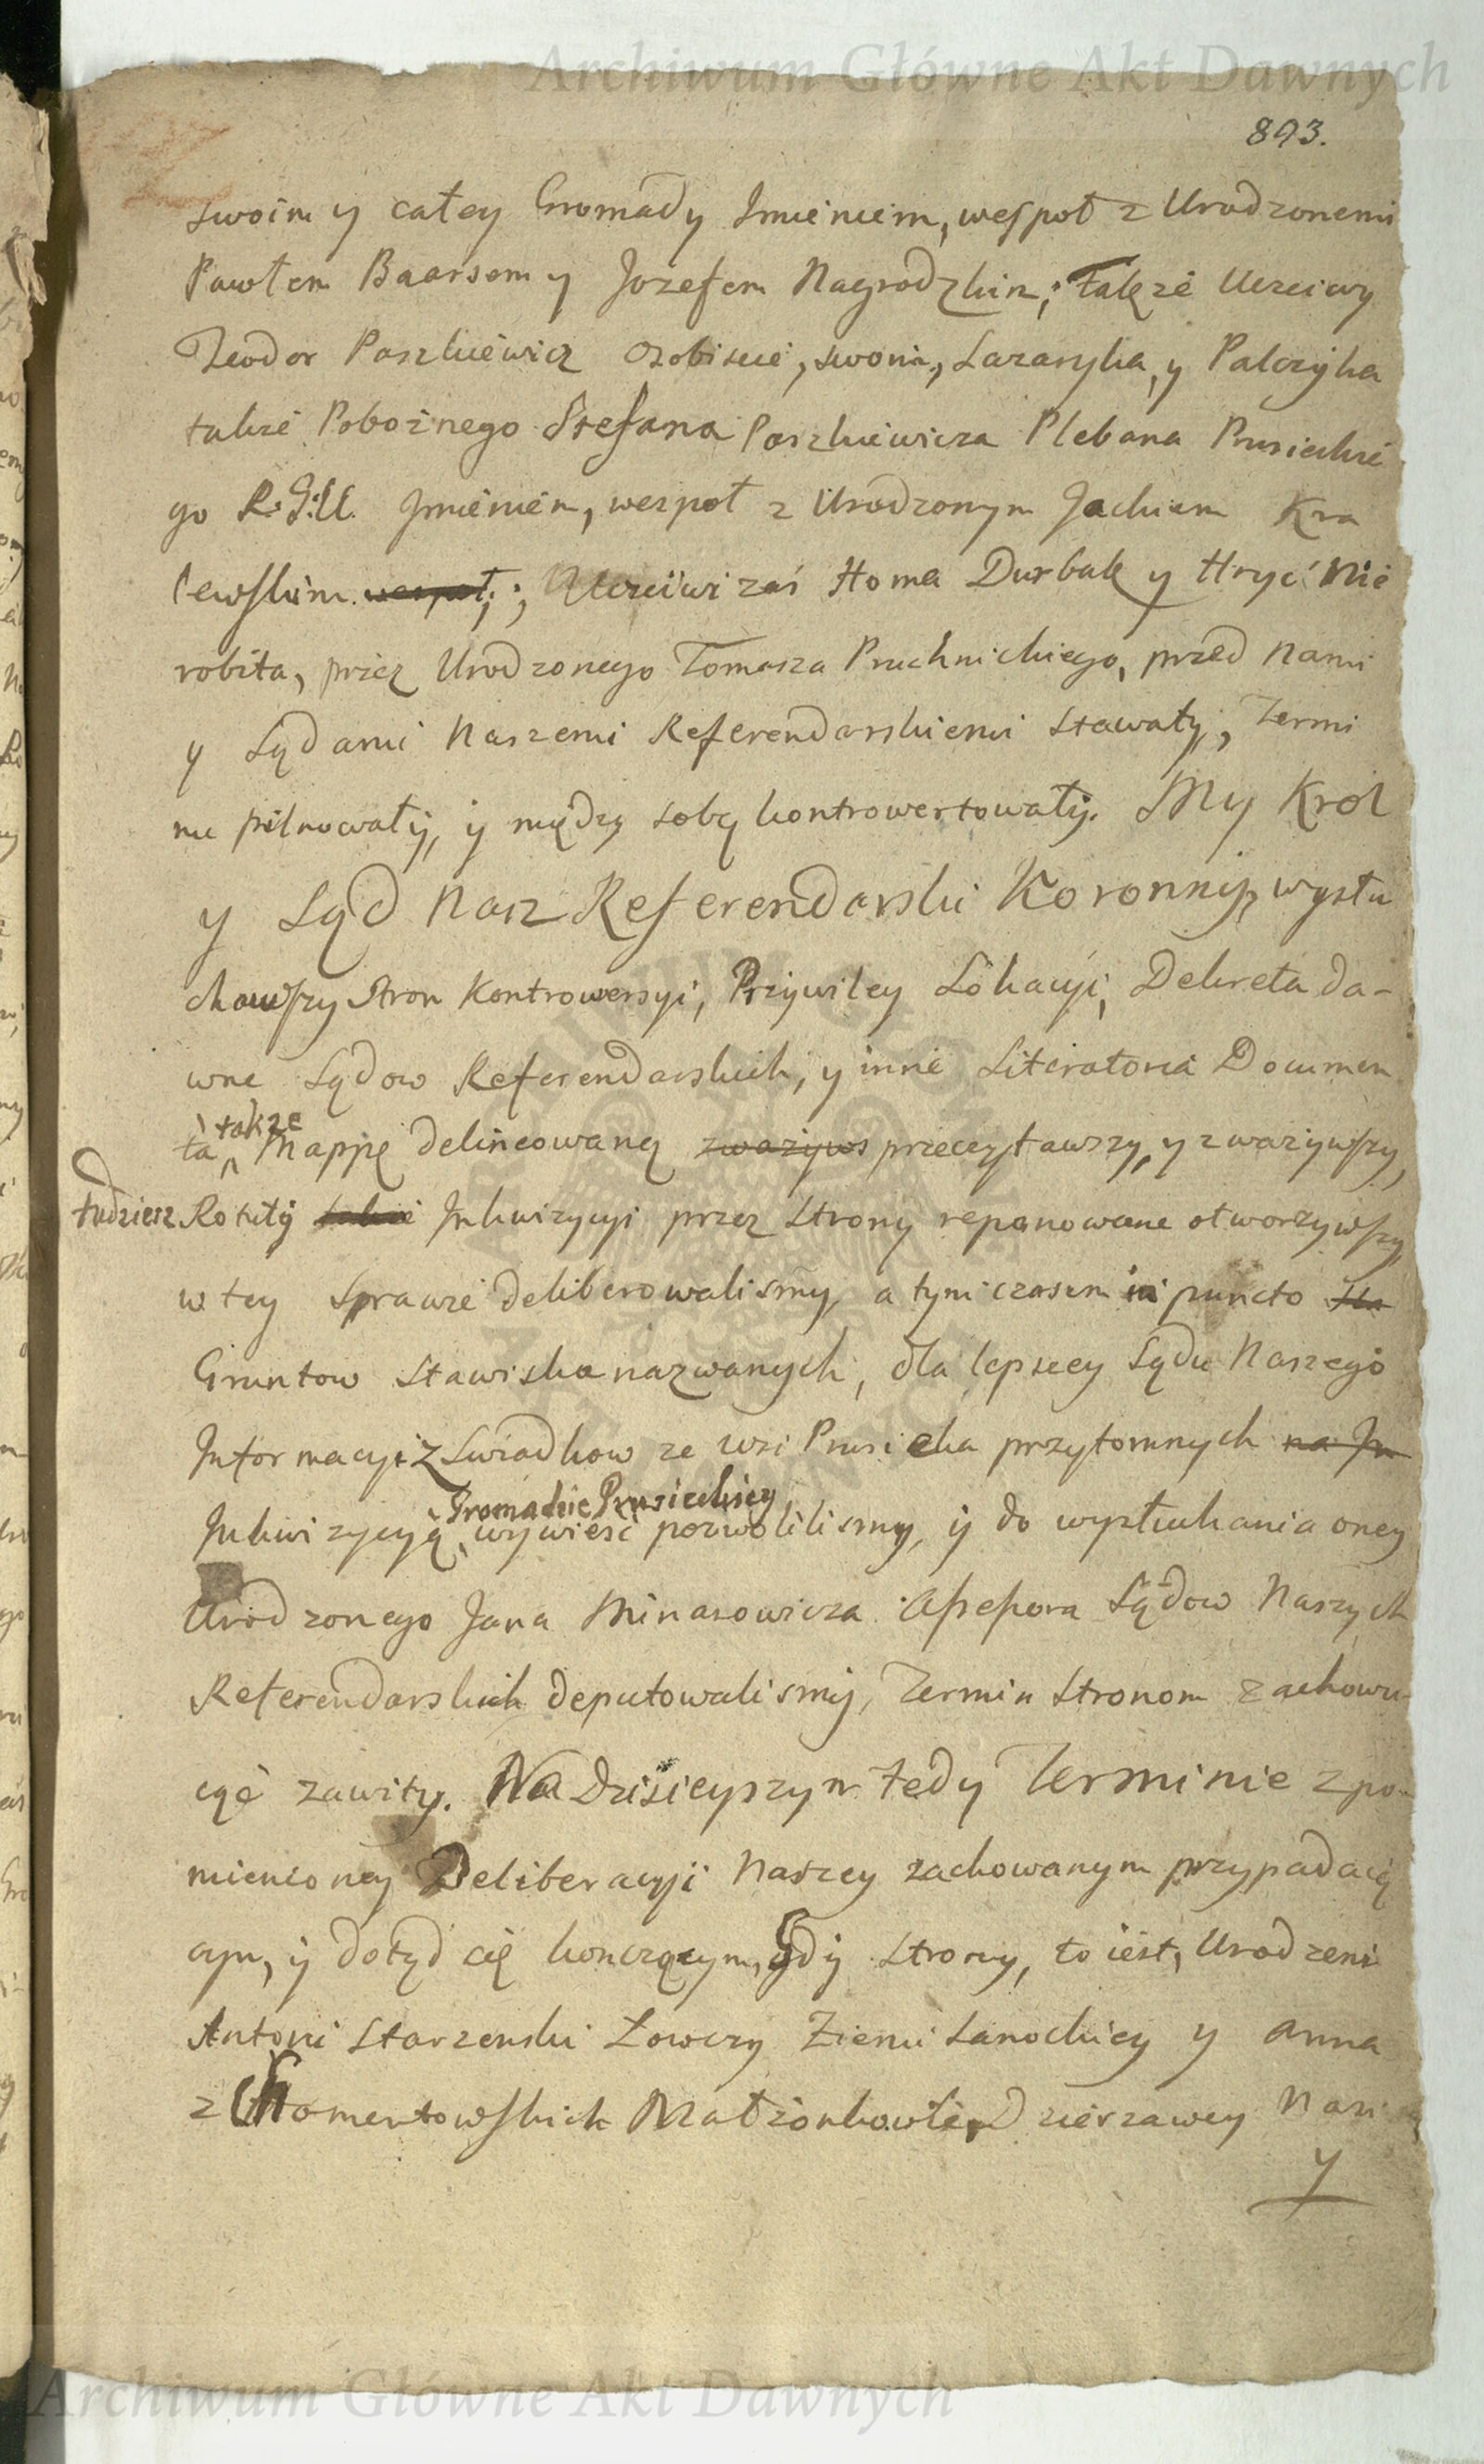 Archiwum Główne Akt Dawnych
893.
swoim y całey Gromady Imieniem, wespoł z Urodzonemi
Pawłem Baarsem y Jozefem Nagrodzkim; także Uczciwy
Teodor Paszkiewicz osobiscie, swoim, Łazaryka, y Palczyka
także Pobożnego Stefana Paszkiewicza Plebana Prusieckie
go R: G: U. Imieniem, wespoł z Urodzonym Jackiem Kra
lewskim wespoł; Uczciwi zaś Homa Durbak y Hryć Nie
robita, przez Urodzonego Tomasza Pruchnickiego, przed nami
y Sądami Naszemi Referendarskiemi stawały, Termi
nu pilnowały, y między sobą kontrowertowały. My Krol
y Sąd Nasz Referendarski Koronny, wysłu
chawszy Stron Kontrowersyi, Przywiley Lokacyi, Dekreta da-
wne Sądow Referendarskich, y inne Literatoria Documen
ta, także Mappę delineowaną zważyws przeczytawszy, y zważywszy,
tudziesz Rotuły także Inkwizycyi przez Strony reponowane otworzywszy
w tey sprawie deliberowalismy, a tymczasem in puncto Sta
Gruntow Stawiska nazwanych, dla lepszey Sądu Naszego
Informacyi z Swiadkow ze wsi Prusieka przytomnych na In
Gromadzie Prusieckiey
Inkwizycyą, wywieść pozwolilismy, y do wysłuchania oney
Urodzonego Jana Minasowicza Assessora Sądow Naszych
Referendarskich deputowalismy, Termin Stronom zachowu
iąc zawity. Na Dzisieyszym tedy Terminie z po-
mienioney Deliberacyi Naszey zachowanym przypadaią
cym, y dotąd się kończącym, Gdy Strony, to iest, Urodzeni
Antoni Starzenski Łowczy Ziemi Sanockiey y Anna
z Chomentowskich Małżonkowie, Dzierzawcy Nasi
y
Archiwum Główne Akt Dawnych